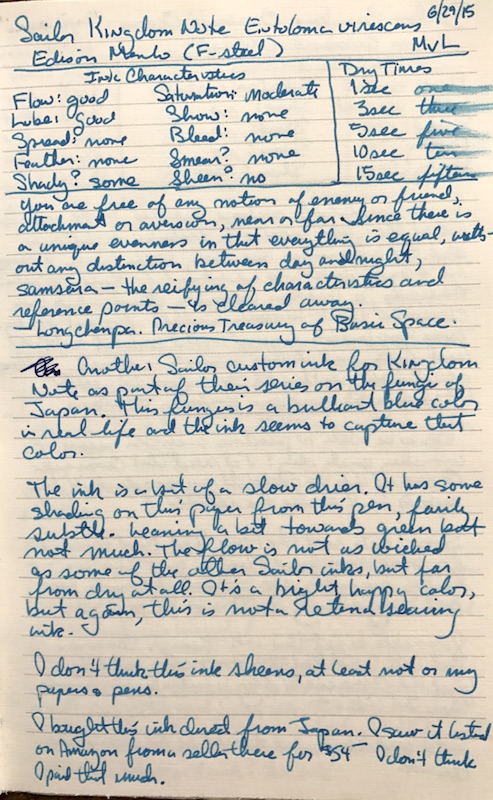 Sailor Kingdom Note Entoloma virescens 6/29/15
Edison Menlo (F-steel) MvL
Ink Characteristics
Flow: good Saturation: Moderate
Lube: Good Show: none
Spread: none Bleed: none
Feather: none Smear? none
Shady? some Sheen? no
Dry Times
1 sec one
3 sec three
5 sec five
10 sec ten
15 sec fifteen
You are free of any notion of enemy or friend,
attachment or aversion, near or far. Since there is
a unique evenness in that everything is equal, with-
out any distinction between day and night,
samsara – the reifying of characteristics and
reference points – is cleared away.
– Longchenpa. Precious Treasury of Basic Space.
Another Sailor custom ink for Kingdom
Note as part of their series on the fungi of
Japan. This fungus is a brilliant blue color
in real life and the ink seems to capture that
color.
The ink is a bit of a slow drier. It has some
shading on this paper from this pen, fairly
subtle. Leaning a bit towards green but
not much. The flow is not as wicked
as some of the other Sailor inks, but far
from dry at all. It's a bright happy color,
but again, this is not a retena searing
ink.
I don't think this ink sheens, at least not on my
papers & pens.
I bought this ink direct from Japan. I saw it listed
on Amazon from a seller there for $54 – I don't think
I paid that much.